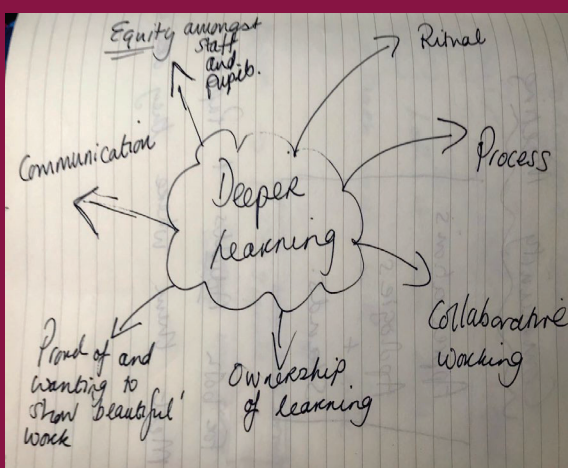 Equity amongst
staff
and
pupils.
Ritual
Communication
Process
Deeper
Learning
Collaborative
working
Proud of and
wanting to
show 'beautiful'
work
Ownership
of learning